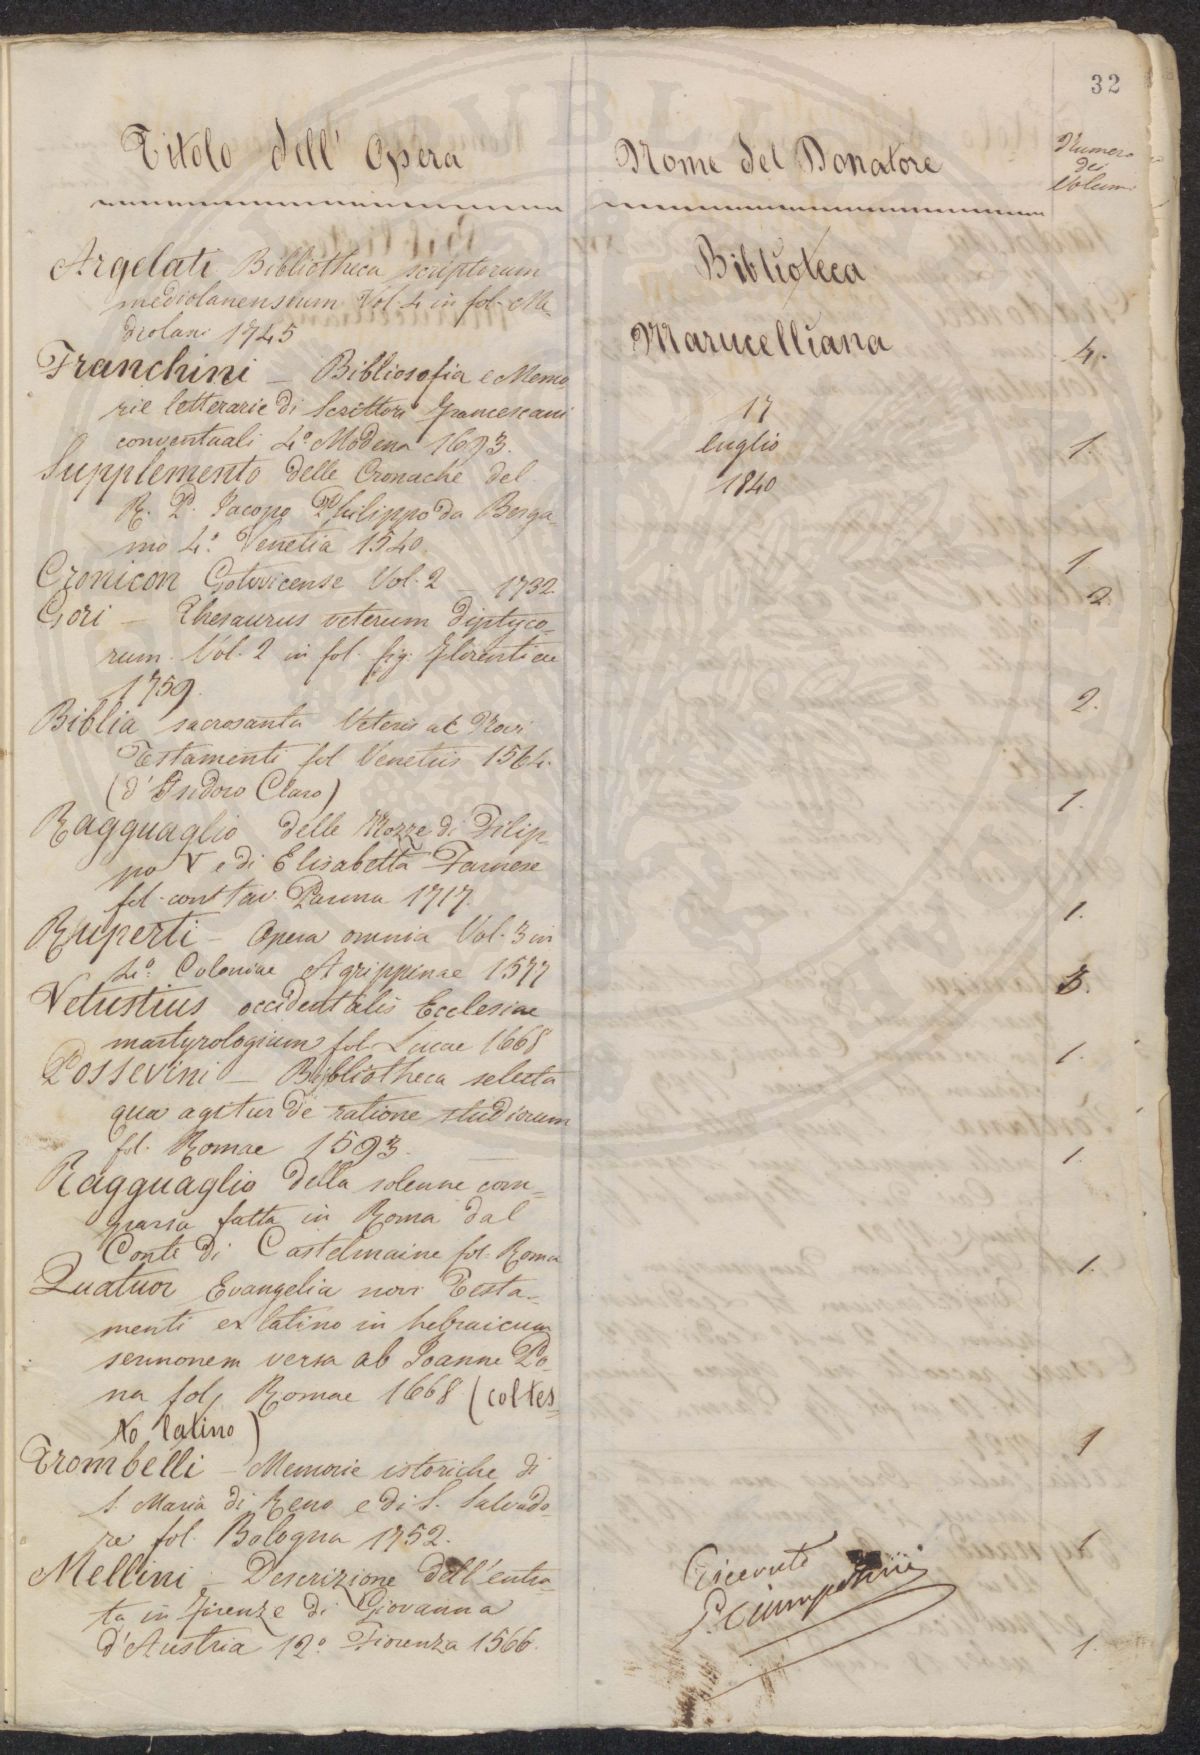 32
Titolo dell' Opera
Nome del Donatore
Numero
dei
Volumi
Argelati Bibliotheca scriptorum
mediolanensium Vol. 4 in fol. Me
diolani 1745
Biblioteca
Marucelliana
4.
Franchini – Bibliosofia e Memo
rie letterarie di Scrittori francescani
conventuali 4.º Modena 1693.
17
luglio
1840
1.
Supplemento delle Cronache del
R. P. Jacopo Philippo da Berga
mo 4.º Venetia 1540.
1
Cronicon Gotwicense Vol. 2 – 1732
2.
Gori – Thesaurus veterum diptyco-
rum. Vol. 2 in fol. fig. Florentiae
1759.
2.
Biblia sacrosanta Veteris ac Novi
Testamenti fol Venetiis 1564.
(d'Isidoro Claro)
1.
Ragguaglio delle Nozze di Filip-
po V e di Elisabetta Farnese
fol. con tav. Parma 1717.
1.
Ruperti – Opera omnia Vol. 3 in
4.º Coloniae Agrippinae 1577
3.
Vetustius occidentalis Ecclesiae
martyrologium fol. Lucae 1668
1.
Possevini – Bibliotheca selecta
qua agitur de ratione studiorum
fol. Romae 1593.
1.
Ragguaglio della solenne com-
parsa fatta in Roma dal
Conte di Castelmaine fol. Roma
1.
Quatuor Evangelia novi Testa-
menti ex latino in hebraicum
sermonem versa ab Joanne Jo-
na fol. Romae 1668 (col tes-
to latino)
1
Trombelli – Memorie istoriche di
S. Maria di Reno e di S. Salvado-
re fol. Bologna 1752.
1
Mellini – Descrizione dell'entra-
ta in Firenze di Giovanna
d'Austria 12.º Fiorenza 1566.
1.
Ricevuto